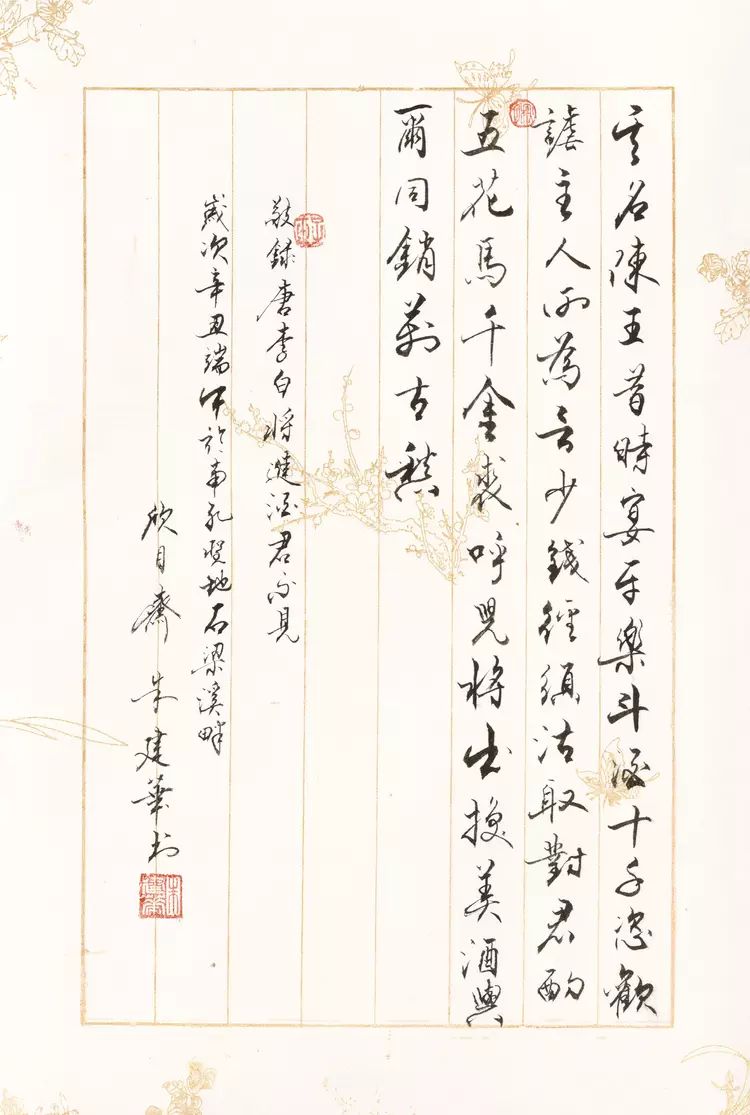 其名陳王昔時宴平樂斗酒十千恣歡
謔主人何為言少錢徑須沽取對君酌
五花馬千金裘呼兒將出換美酒與
爾同銷萬古愁
敬錄唐李白將進酒君不見
歲次辛丑端午於南孔聖地石梁溪畔
欣目齋朱建華書